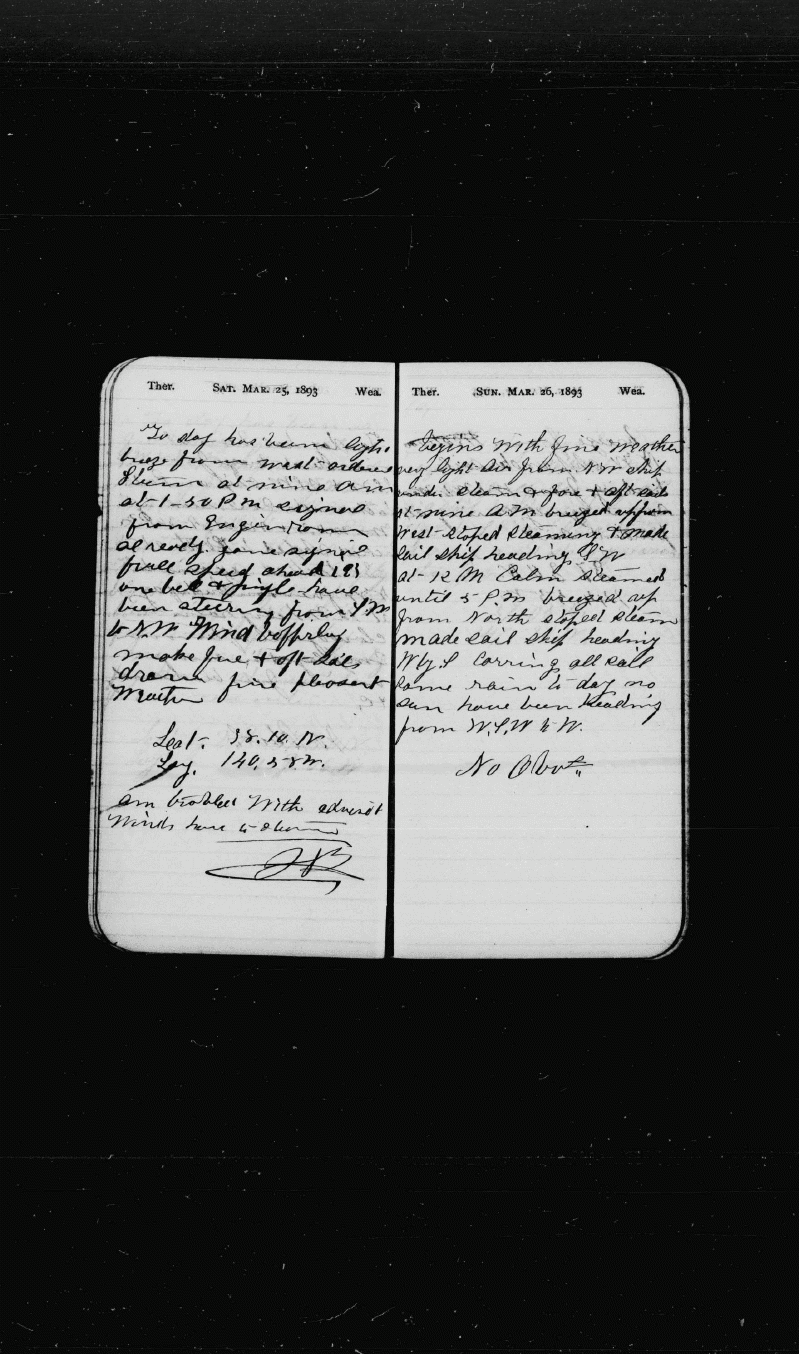 Ther. SAT. MAR. 25, 1893 Wea.
To day has been light
breeze from west ordered
Steam at nine a.m
at 1-30 P.m signed
from Engin room
already gave signel
full speed ahead
one bell & jingle have
been steering from
to N.W Wind
make fore & oft sails
draw fine pleasent
Weather
Leat. 38.10.N.
Log. 140.58.W.
am trobled With adverst
Winds have to steam
Ther. SUN. MAR. 26, 1893 Wea.
begins With fine Weather
very light air from N.W ship
under steam & fore & oft sails
at nine A.M breezed up from
West stoped steaming & made
sail ship heading S.W
at 12 M Calm steamed
until 5 P.M breezed up
from North stoped steam
made sail ship heading
W by S Corring all sail
some rain to day no
sun have been heading
from W.S.W to W.
No Obs